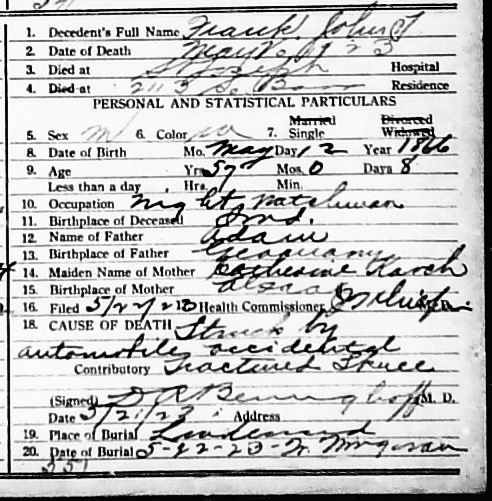 1. Decedent's Full Name Frank John
2. Date of Death May 20 1923
3. Died at St Joseph Hospital
4. Died at 2113 So. Residence
PERSONAL AND STATISTICAL PARTICULARS
Married Divorced
5. Sex m 6. Color w 7. Single Widowed
8. Date of Birth Mo. May Day 12 Year 1866
9. Age Yrs 57 Mos. 0 Days 8
Less than a day Hrs. Min.
10. Occupation night watchman
11. Birthplace of Deceased Ind.
12. Name of Father Adam
13. Birthplace of Father Germany
14. Maiden Name of Mother Catherine Karch
15. Birthplace of Mother Alsace
16. Filed 5/22/23 Health Commissioner
18. CAUSE OF DEATH Struck by
automobile accidental
Contributory Fractured Skull
(Signed) M. D.
Date 5/21/23 Address
19. Place of Burial Lindenwood
20. Date of Burial 5-22-23